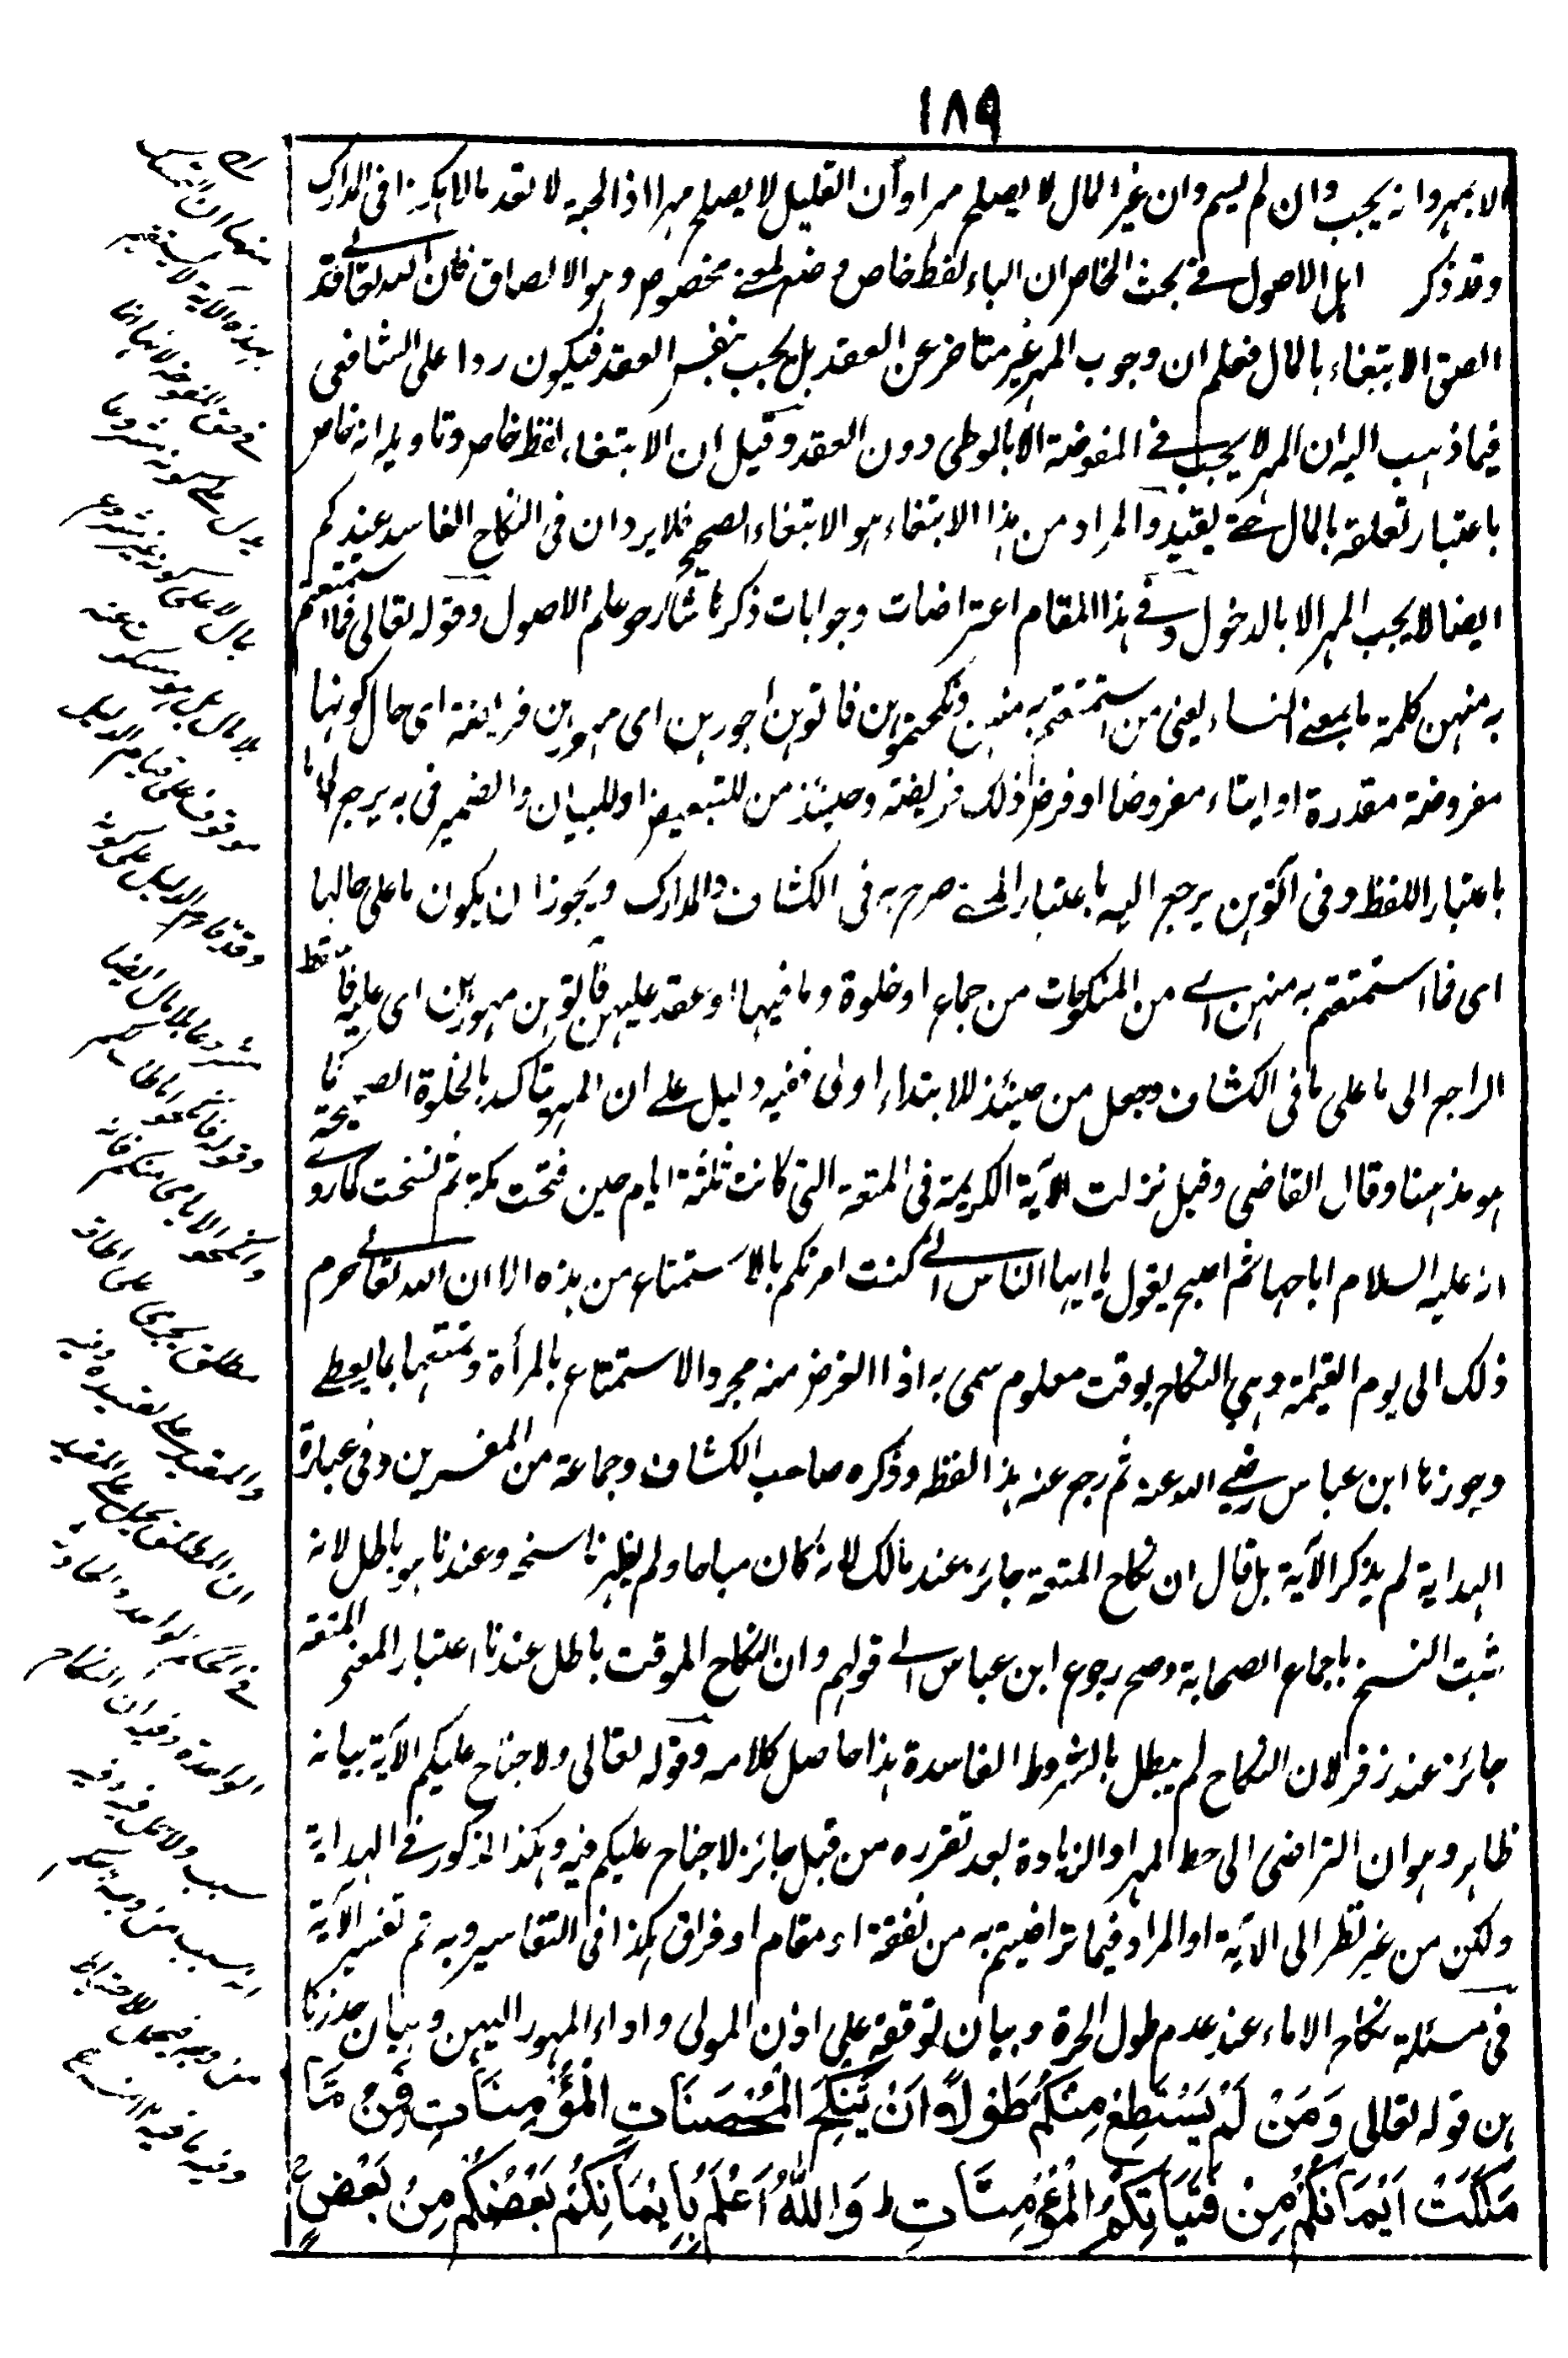 ١٨٩
الا بمهر وانه يجب وان لم يسم وان غير المال لا يصلح مهرا وأن القليل لا يصلح مهرا اذ الحبة لا تعد مالا هكذا فى المدارك
وقد ذكر اهل الاصول فے بحث الخاص ان الباء لفظ خاص وضع لمعنے مخصوص وهو الالصاق فان الله تعالے قد
الصق الابتغاء بالمال فعلم ان وجوب المهر غير متاخر عن العقد بل يجب بنفس العقد فيكون ردا على الشافعى
فيما ذهب اليه ان المهر لا يجب فے المفوضة الا بالوطى دون العقد وقيل ان الابتغاء لفظ خاص وتاويله انه خاص
باعتبار تعلقه بالمال حتے يقيد والمراد من هذا الابتغاء هو الابتغاء الصحيح فلا يرد ان فى النكاح الفاسد عندكم
ايضا لا يجب المهر الا بالدخول وفے هذا المقام اعتراضات وجوابات ذكرها شارحو علم الاصول وقوله تعالى فما استمتعتم
به منهن كلمة ما بمعنے النساء يعنى من استمتعتم به منهن ونكحتموهن فاتوهن اجورهن اى مهورهن فريضة اى حال كونها
مفروضة مقدرة او ايتاء مفروضا او فرض ذلك فريضة وحينئذ من للتبعيض او للبيان والضمير فى به يرجع الى ما
باعتبار اللفظ وفى اتوهن يرجع اليه باعتبار المعنے صرح به فى الكشاف والمدارك ويجوز ان يكون ما على حالها
اى فما استمتعتم به منهن اے من المنكوحات من جماع او خلوة وما فيها او عقد عليهن فاتوهن مهورهن اى عليه فاسقط
الراجع الى ما على ما فى الكشاف وجعل من حينئذ للابتداء اولى ففيه دليل علے ان المهر يتاكد بالخلوة الصحيحة كما
هو مذهبنا وقال القاضى وقيل نزلت الآية الكريمة فى المتعة التى كانت ثلثة ايام حين فتحت مكة ثم نسخت كما روے
انه عليه السلام اباحها ثم اصبح يقول يا ايها الناس انى كنت امرتكم بالاستمتاع من هذه الا ان الله تعالے حرم
ذلك الى يوم القيمة وهى النكاح بوقت معلوم سمى به اذ الغرض منه مجرد الاستمتاع بالمرأة وتمتعها بما يعطے
وجوزها ابن عباس رضے الله عنه ثم رجع عنه هذا لفظه وذكره صاحب الكشاف وجماعة من المفسرين وفى عبارة
الهداية لم يذكر الآية بل قال ان نكاح المتعة جائز عند مالك لانه كان مباحا ولم يظهر ناسخه وعندنا هو باطل لانه
ثبت النسخ باجماع الصحابة وصح رجوع ابن عباس الے قولهم وان النكاح الموقت باطل عندنا اعتبار المعنى المتعة
جائز عند زفر لان النكاح لم يبطل بالشروط الفاسدة هذا حاصل كلامه وقوله تعالى ولا جناح عليكم الآية بيانه
ظاهر وهو ان التراضى الى حط المهر او الزيادة بعد تقرره من قبل جائز لا جناح عليكم فيه وهكذا المذكور فے الهداية
ولكن من غير نظر الى الآية او المراد فيما تراضيتم به من نفقة او مقام او فراق هكذا فى التفاسير وبه تم تفسير الآية
فى مسئلة نكاح الاماء عند عدم طول الحرة وبيان توقفه على اذن المولى واداء المهور اليهن وبيان حد زنا
هن قوله تعالى وَمَنْ لَّمْ يَسْتَطِعْ مِنْكُمْ طَوْلًا اَنْ يَّنْكِحَ الْمُحْصَنَاتِ الْمُؤْمِنَاتِ فَمِنْ مَّا
مَلَكَتْ اَيْمَانُكُمْ مِنْ فَتَيَاتِكُمُ الْمُؤْمِنَاتِ ط وَاللّٰهُ اَعْلَمُ بِاِيْمَانِكُمْ بَعْضُكُمْ مِنْ بَعْضٍ ج
بهذه الآية لا يستقيم
فے حق المفوضة لانها انما
يدل علے كونه مشروعا
بمال لا على كونه غير مشروع
بلا مال بل هو مسكوت عنه
موقوف على قيام الدليل
وقد قام الدليل على كونه
مشروعا بلا مال ايضا
وهو قوله فانكحوا ما طاب لكم
وانكحوا الايامى منكم فانه
مطلق يجرى على اطلاقه
والمقيد علے تقييده وفيه
ان المطلق يحمل علے المقيد
فے الحكم الواحد والحادثة
الواحدة وفيه ان النكاح
وفيه ما فيه